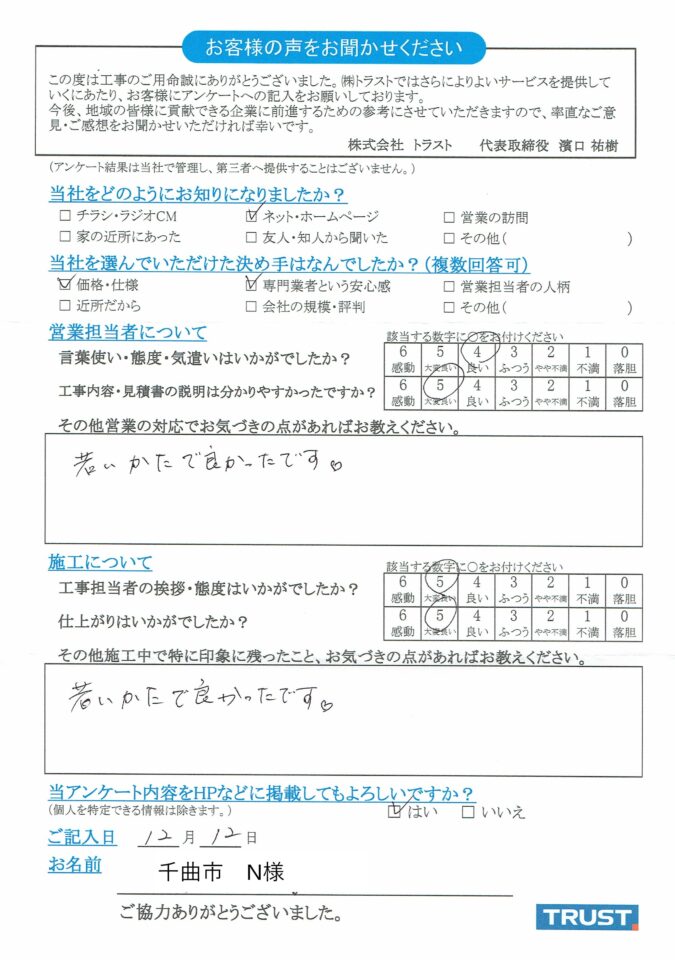 お客様の声をお聞かせください
この度は工事のご用命誠にありがとうございました。㈱トラストではさらによりよいサービスを提供して
いくにあたり、お客様にアンケートへの記入をお願いしております。
今後、地域の皆様に貢献できる企業に前進するための参考にさせていただきますので、率直なご意
見・ご感想をお聞かせいただければ幸いです。
株式会社 トラスト 代表取締役 濱口 祐樹
(アンケート結果は当社で管理し、第三者へ提供することはございません。)
当社をどのようにお知りになりましたか？
□ チラシ・ラジオCM ☑ ネット・ホームページ □ 営業の訪問
□ 家の近所にあった □ 友人・知人から聞いた □ その他( )
当社を選んでいただけた決め手はなんでしたか？(複数回答可)
☑ 価格・仕様 ☑ 専門業者という安心感 □ 営業担当者の人柄
□ 近所だから □ 会社の規模・評判 □ その他( )
営業担当者について 該当する数字に○をお付けください
言葉使い・態度・気遣いはいかがでしたか？ 6 5 4 3 2 1 0
感動 大変良い 良い ふつう やや不満 不満 落胆
工事内容・見積書の説明は分かりやすかったですか？ 6 5 4 3 2 1 0
感動 大変良い 良い ふつう やや不満 不満 落胆
その他営業の対応でお気づきの点があればお教えください。
若いかたで良かったです♡
施工について 該当する数字に○をお付けください
工事担当者の挨拶・態度はいかがでしたか？ 6 5 4 3 2 1 0
感動 大変良い 良い ふつう やや不満 不満 落胆
仕上がりはいかがでしたか？ 6 5 4 3 2 1 0
感動 大変良い 良い ふつう やや不満 不満 落胆
その他施工中で特に印象に残ったこと、お気づきの点があればお教えください。
若いかたで良かったです♡
当アンケート内容をHPなどに掲載してもよろしいですか？
(個人を特定できる情報は除きます。) ☑ はい □ いいえ
ご記入日 12 月 12 日
お名前 千曲市 N様
ご協力ありがとうございました。
TRUST